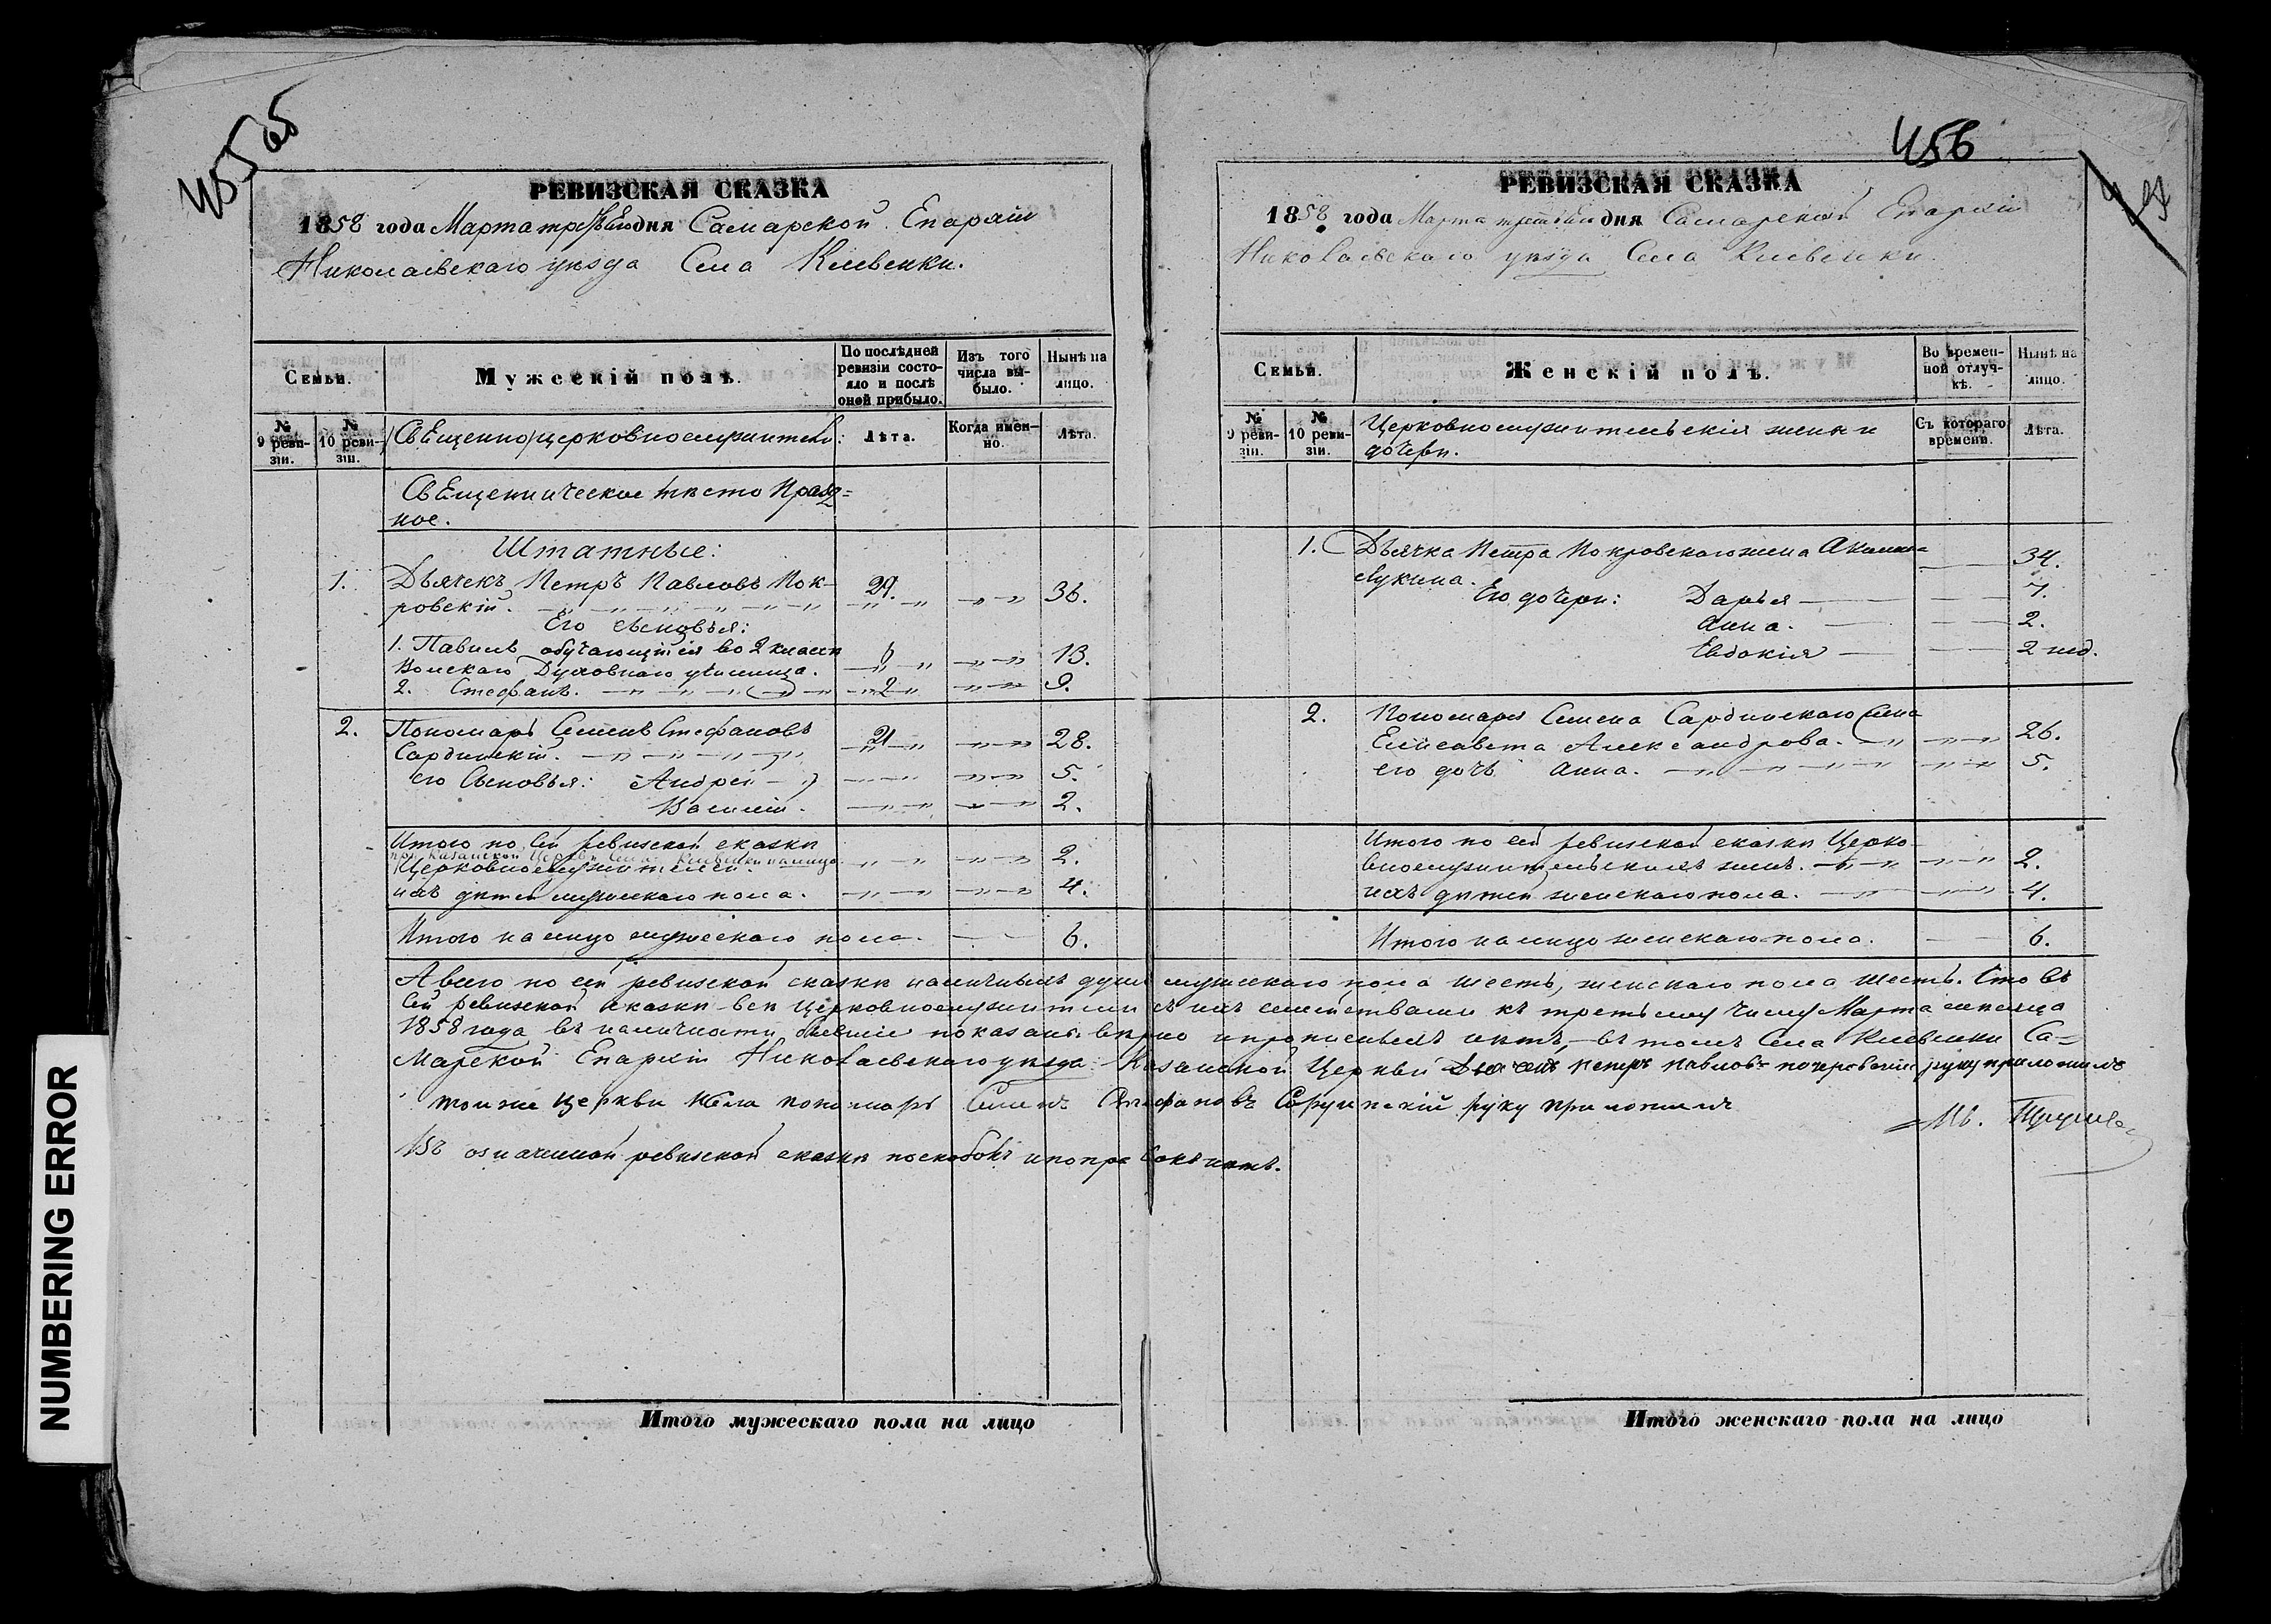 455 об
РЕВИЗСКАЯ СКАЗКА
1858 года Марта третьяго дня Самарской Епархіи
Николаевскаго уѣзда Села Клевенки.
Семьи.
Мужескій полъ.
По послѣдней ревизіи состояло и послѣ оной прибыло.
Изъ того числа выбыло.
Нынѣ на лицо.
№ 9 ревизіи.
№ 10 ревизіи.
Священно/церковнослужители:
Лѣта.
Когда именно.
Лѣта.
Священническое мѣсто празд=
ное.
Штатные:
1. Дьячекъ Петръ Павловъ Пок-
ровскій. 29. 36.
Его сыновья:
1. Павелъ обучающійся во 2 классѣ
Вольскаго Духовнаго училища. 6 13.
2. Стефанъ. 2 9.
2. Пономарь Семенъ Стефановъ
Сардинскій. 21 28.
его Сыновья: Андрей 5.
Василій. 2.
Итого по сей ревизской сказкѣ
при Казанской Церкви Села Клевенки налицо
Церковнослужителей. 2.
ихъ дѣтей мужескаго пола. 4.
Итого на лицо мужескаго пола. 6.
456
РЕВИЗСКАЯ СКАЗКА
1858 года Марта третьяго дня Самарской Епархіи
Николаевскаго уѣзда Села Клевенки.
Семьи.
Женскій полъ.
Во временной отлучкѣ.
Нынѣ на лицо.
№ 9 ревизіи.
№ 10 ревизіи.
Церковнослужительскія жены и
дочери.
Съ котораго времени.
Лѣта.
1. Дьячка Петра Покровскаго жена
Лукина. 34.
Его дочери: Дарья 7.
Анна. 2.
Евдокія 2 нед.
2. Пономаря Семена Сардинскаго жена
Елисавета Александрова. 26.
его дочь Анна. 5.
Итого по сей ревизской сказкѣ Церко-
внослужительскихъ женъ. 2.
ихъ дѣтей женскаго пола. 4.
Итого на лицо женскаго пола. 6.
А всего по сей ревизской сказкѣ наличныхъ душъ мужескаго пола шесть, женскаго пола шесть. Что въ
сей ревизской сказкѣ всѣ церковнослужители съ ихъ семействами къ третьему числу Марта мѣсяца
1858 года въ наличности бывшіе показаны вѣрно и прописныхъ нѣтъ, въ томъ Села Клевенки Са=
марской Епархіи Николаевскаго уѣзда Казанской Церкви Дьячекъ Петръ Павловъ Покровскій руку приложилъ
тойже Церкви Села пономарь Семенъ Стефановъ Сардинскій руку приложилъ
Въ означенной ревизской сказкѣ поскобокъ и поправокъ нѣтъ.
Итого мужескаго пола на лицо
Итого женскаго пола на лицо
NUMBERING ERROR